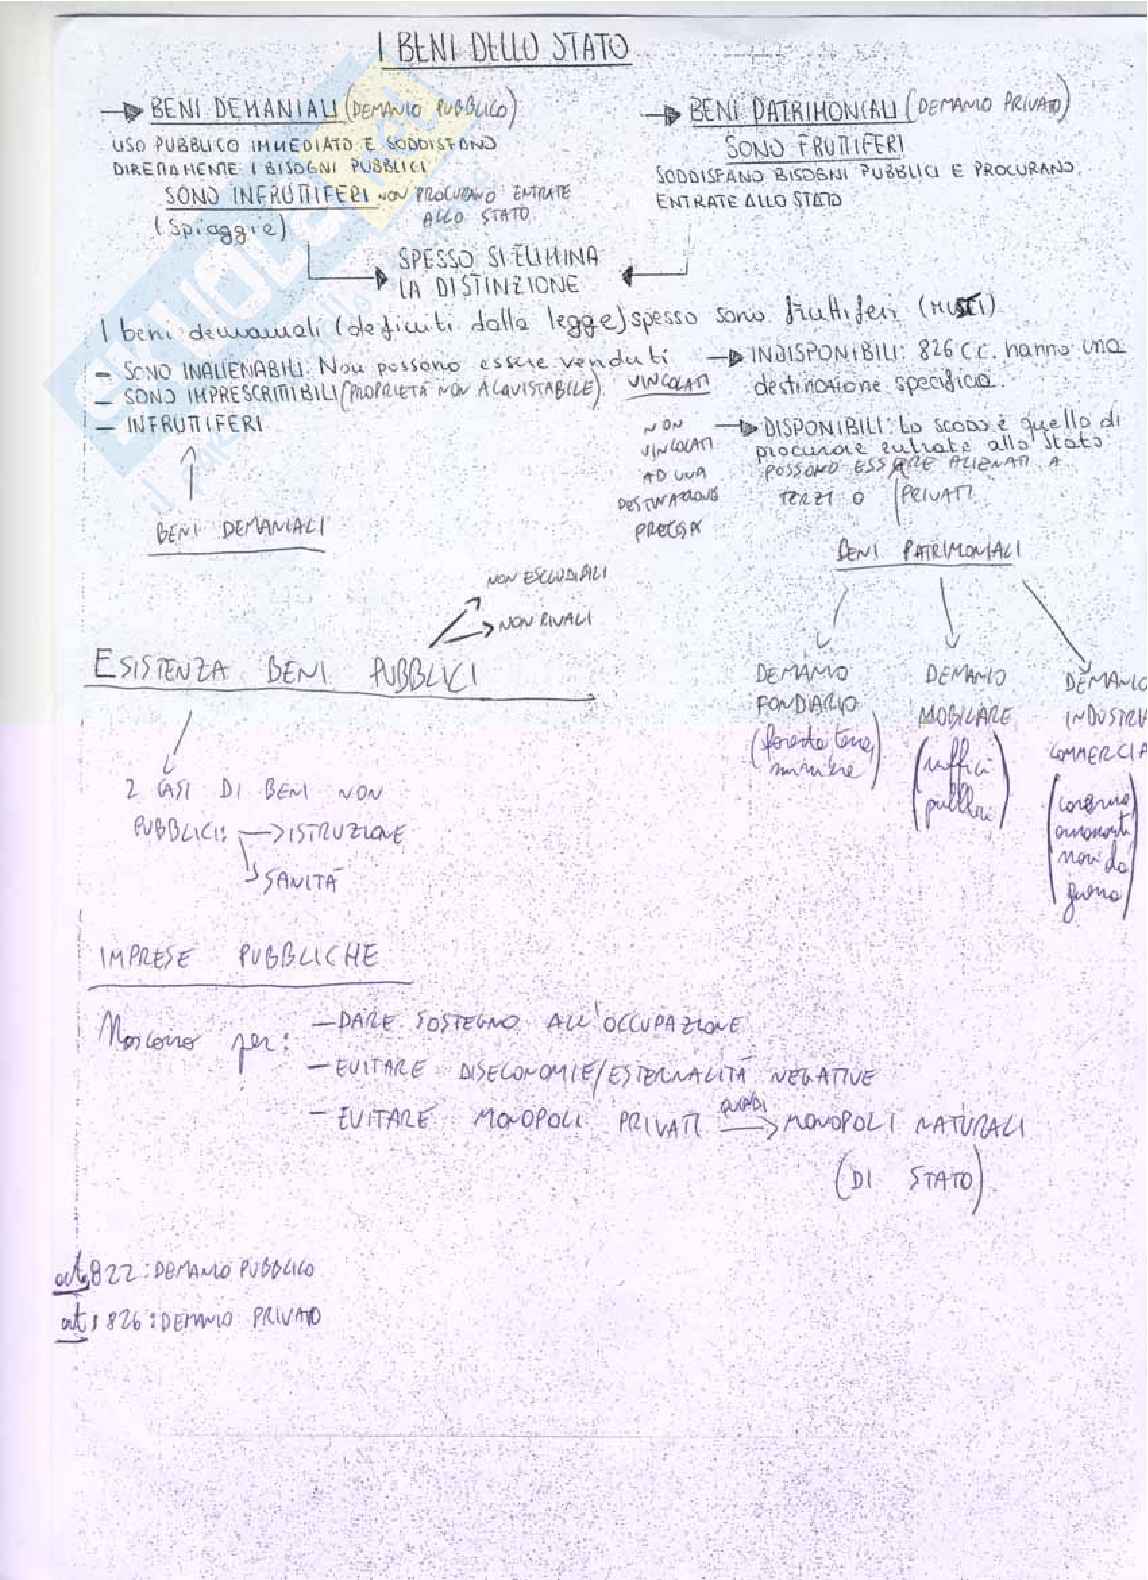 I BENI DELLO STATO
BENI DEMANIALI (DEMANIO PUBBLICO)
USO PUBBLICO IMMEDIATO E SODDISFANO
DIRETTAMENTE I BISOGNI PUBBLICI
SONO INFRUTTIFERI NON PROCURANO ENTRATE
ALLO STATO
(Spiaggie)
BENI PATRIMONIALI (DEMANIO PRIVATO)
SONO FRUTTIFERI
SODDISFANO BISOGNI PUBBLICI E PROCURANO
ENTRATE ALLO STATO
SPESSO SI ELIMINA
LA DISTINZIONE
I beni demaniali (definiti dalla legge) spesso sono fruttiferi (MUSEI)
- SONO INALIENABILI: Non possono essere venduti
- SONO IMPRESCRITTIBILI (PROPRIETÀ NON ACQUISTABILE)
- INFRUTTIFERI
BENI DEMANIALI
VINCOLATI
INDISPONIBILI: 826 C.C. hanno una
destinazione specifica.
NON
VINCOLATI
AD UNA
DESTINAZIONE
PRECISA
DISPONIBILI: Lo scopo è quello di
procurare entrate allo stato
POSSONO ESSERE ALIENATI A
TERZI O PRIVATI
BENI PATRIMONIALI
DEMANIO
FONDIARIO
(foreste terre,
miniere)
DEMANIO
MOBILIARE
(uffici
pubblici)
DEMANIO
INDUSTRIA
COMMERCIA
navi da
guerra)
NON ESCLUDIBILI
NON RIVALI
ESISTENZA BENI PUBBLICI
2 CASI DI BENI NON
PUBBLICI: ISTRUZIONE
SANITÀ
IMPRESE PUBBLICHE
Nascono per:
- DARE SOSTEGNO ALL'OCCUPAZIONE
- EVITARE DISECONOMIE/ESTERNALITÀ NEGATIVE
- EVITARE MONOPOLI PRIVATI QUINDI MONOPOLI NATURALI
(DI STATO)
art. 822: DEMANIO PUBBLICO
art. 826: DEMANIO PRIVATO